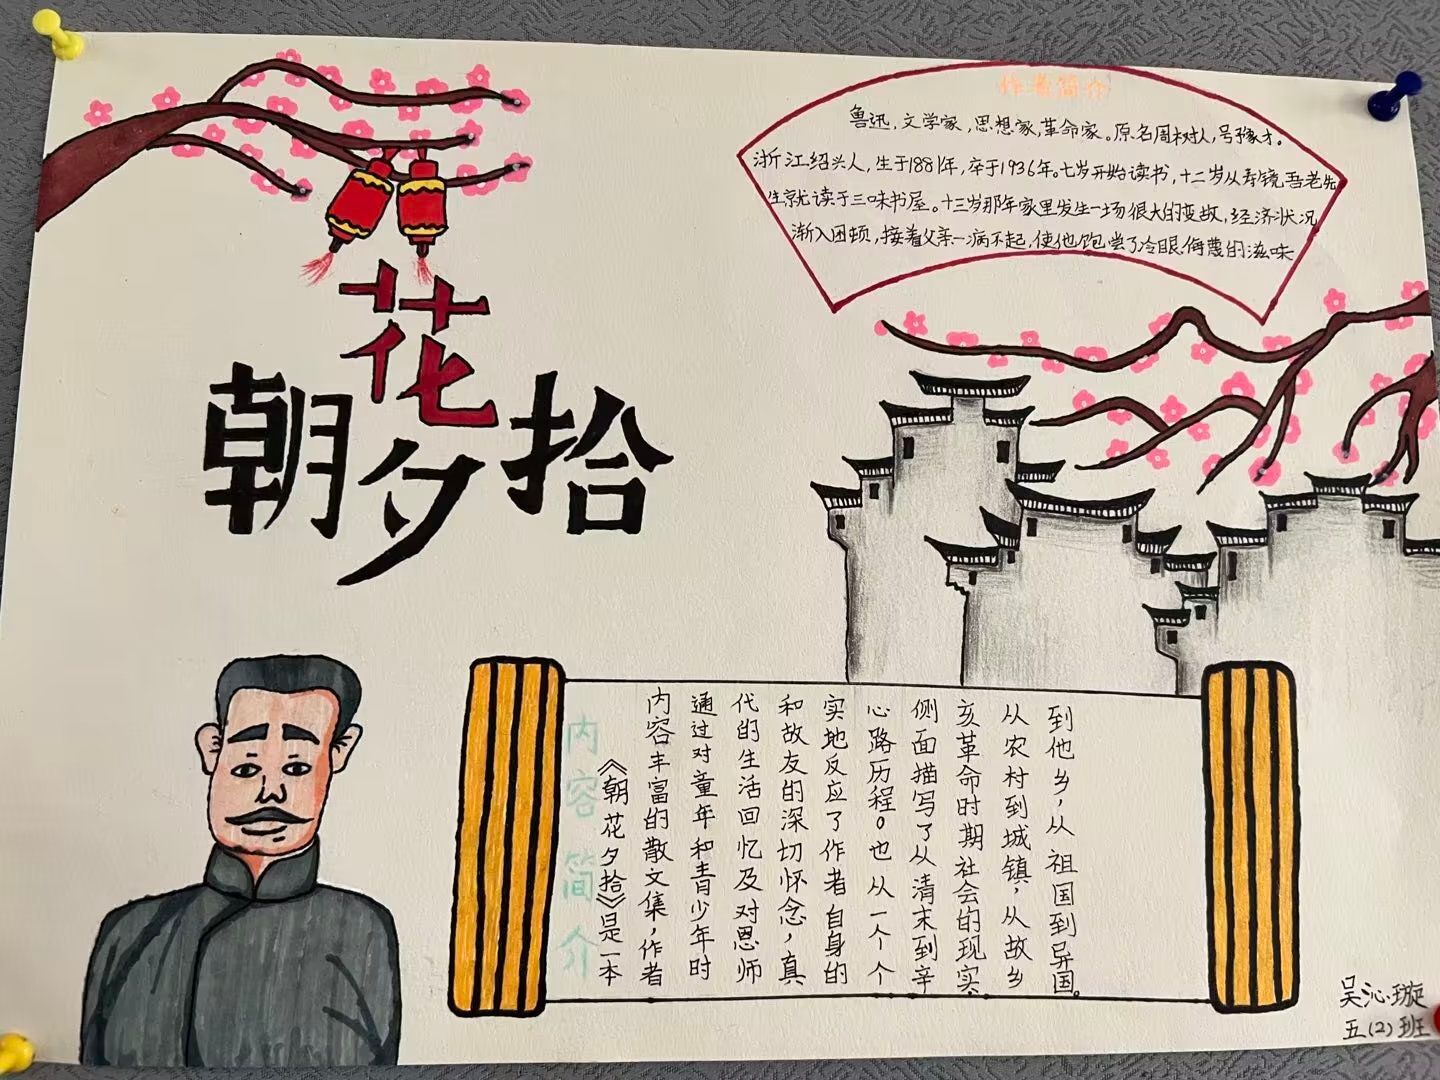 朝花夕拾
作者简介
鲁迅，文学家，思想家，革命家。原名周树人，号豫才。
浙江绍兴人，生于1881年，卒于1936年。七岁开始读书，十二岁从寿镜吾老先
生就读于三味书屋。十三岁那年家里发生一场很大的变故，经济状况
渐入困顿，接着父亲一病不起，使他饱尝了冷眼、侮蔑的滋味
内容简介
《朝花夕拾》是一本
内容丰富的散文集，作者
通过对童年和青少年时
代的生活回忆及对恩师
和故友的深切怀念，真
实地反应了作者自身的
心路历程。也从一个个
侧面描写了从清末到辛
亥革命时期社会的现实，
从农村到城镇，从故乡
到他乡，从祖国到异国。
吴沁璇
五(2)班